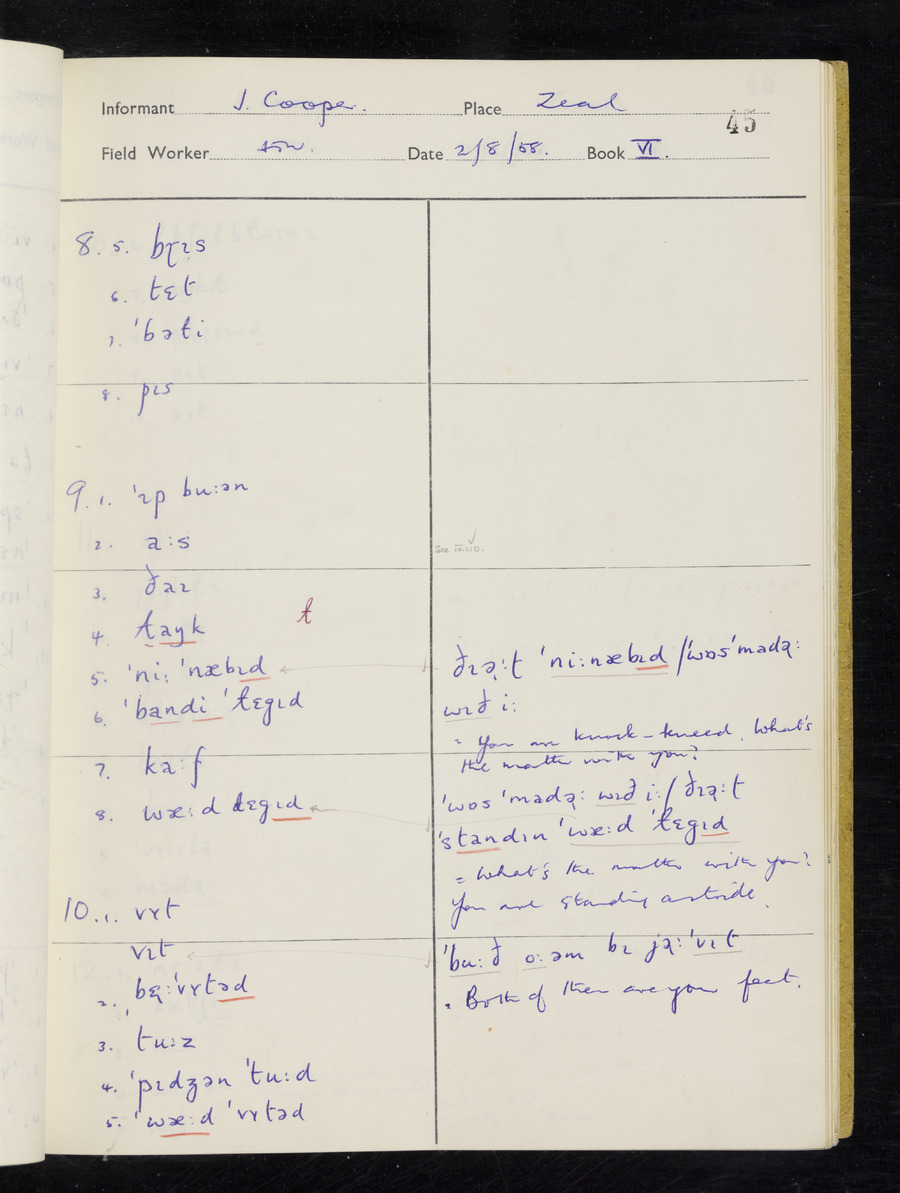 Informant J. Cooper. Place Zeal
45
Field Worker Date 2/8/58. Book VI.
8. 5. bɽɪs
6. tɛt
7. ˈbəti
8. pɪs
9. 1. ˈɪp buːən
2. aːs
See IX.1.10.
3. ðaɪ
4. t̪ayk
t
5. ˈniːˈnæbɪd
6. ˈbandiˈtɛgɪd
7. kaːf
8. wæːd tɛgɪd
10. 1. vʏt
vɪt
2. bɛːˈvʏtəd
3. tuːz
4. ˈpɪdʒən ˈtuːd
5. ˈwæːd ˈvʏtəd
ðɪəːt ˈniːnæbɪd / ˈwɒs ˈmadəː
wɪð iː
= You are knock-kneed. What's
the matter with you?
ˈwɒs ˈmadəː wɪð iː / ðɪəːt
ˈstandɪn ˈwæːd ˈtɛgɪd
= What's the matter with you?
You are standing astride.
ˈbuːð oːəm bɪ jəːˈvɪt
= Both of them are your feet.